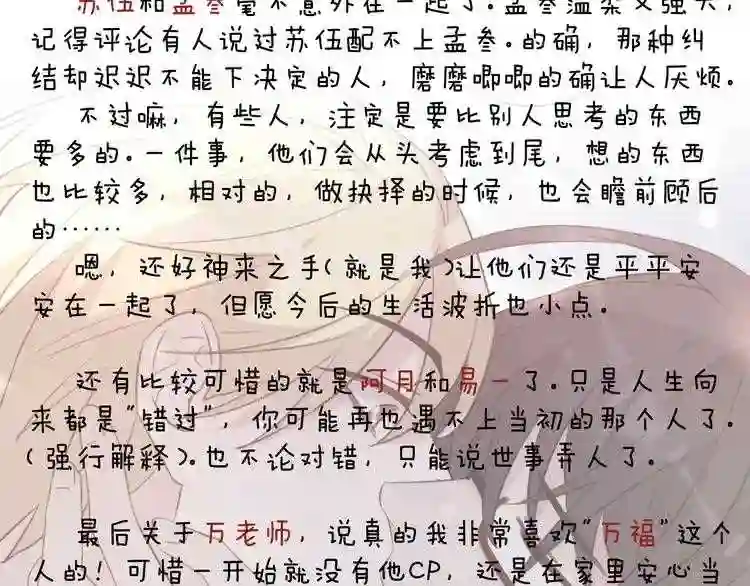 苏伍和孟叁毫不意外在一起了。孟叁温柔又强大，
记得评论有人说过苏伍配不上孟叁。的确，那种纠
结却迟迟不能下决定的人，磨磨唧唧的确让人厌烦。
不过嘛，有些人，注定是要比别人思考的东西
要多的。一件事，他们会从头考虑到尾，想的东西
也比较多，相对的，做抉择的时候，也会瞻前顾后
的……
嗯，还好神来之手(就是我)让他们还是平平安
安在一起了，但愿今后的生活波折也小点。
还有比较可惜的就是阿月和易一了。只是人生向
来都是“错过”，你可能再也遇不上当初的那个人了。
(强行解释)。也不论对错，只能说世事弄人了。
最后关于万老师，说真的我非常喜欢“万福”这个
人的！可惜一开始就没有他CP，还是在家里安心当